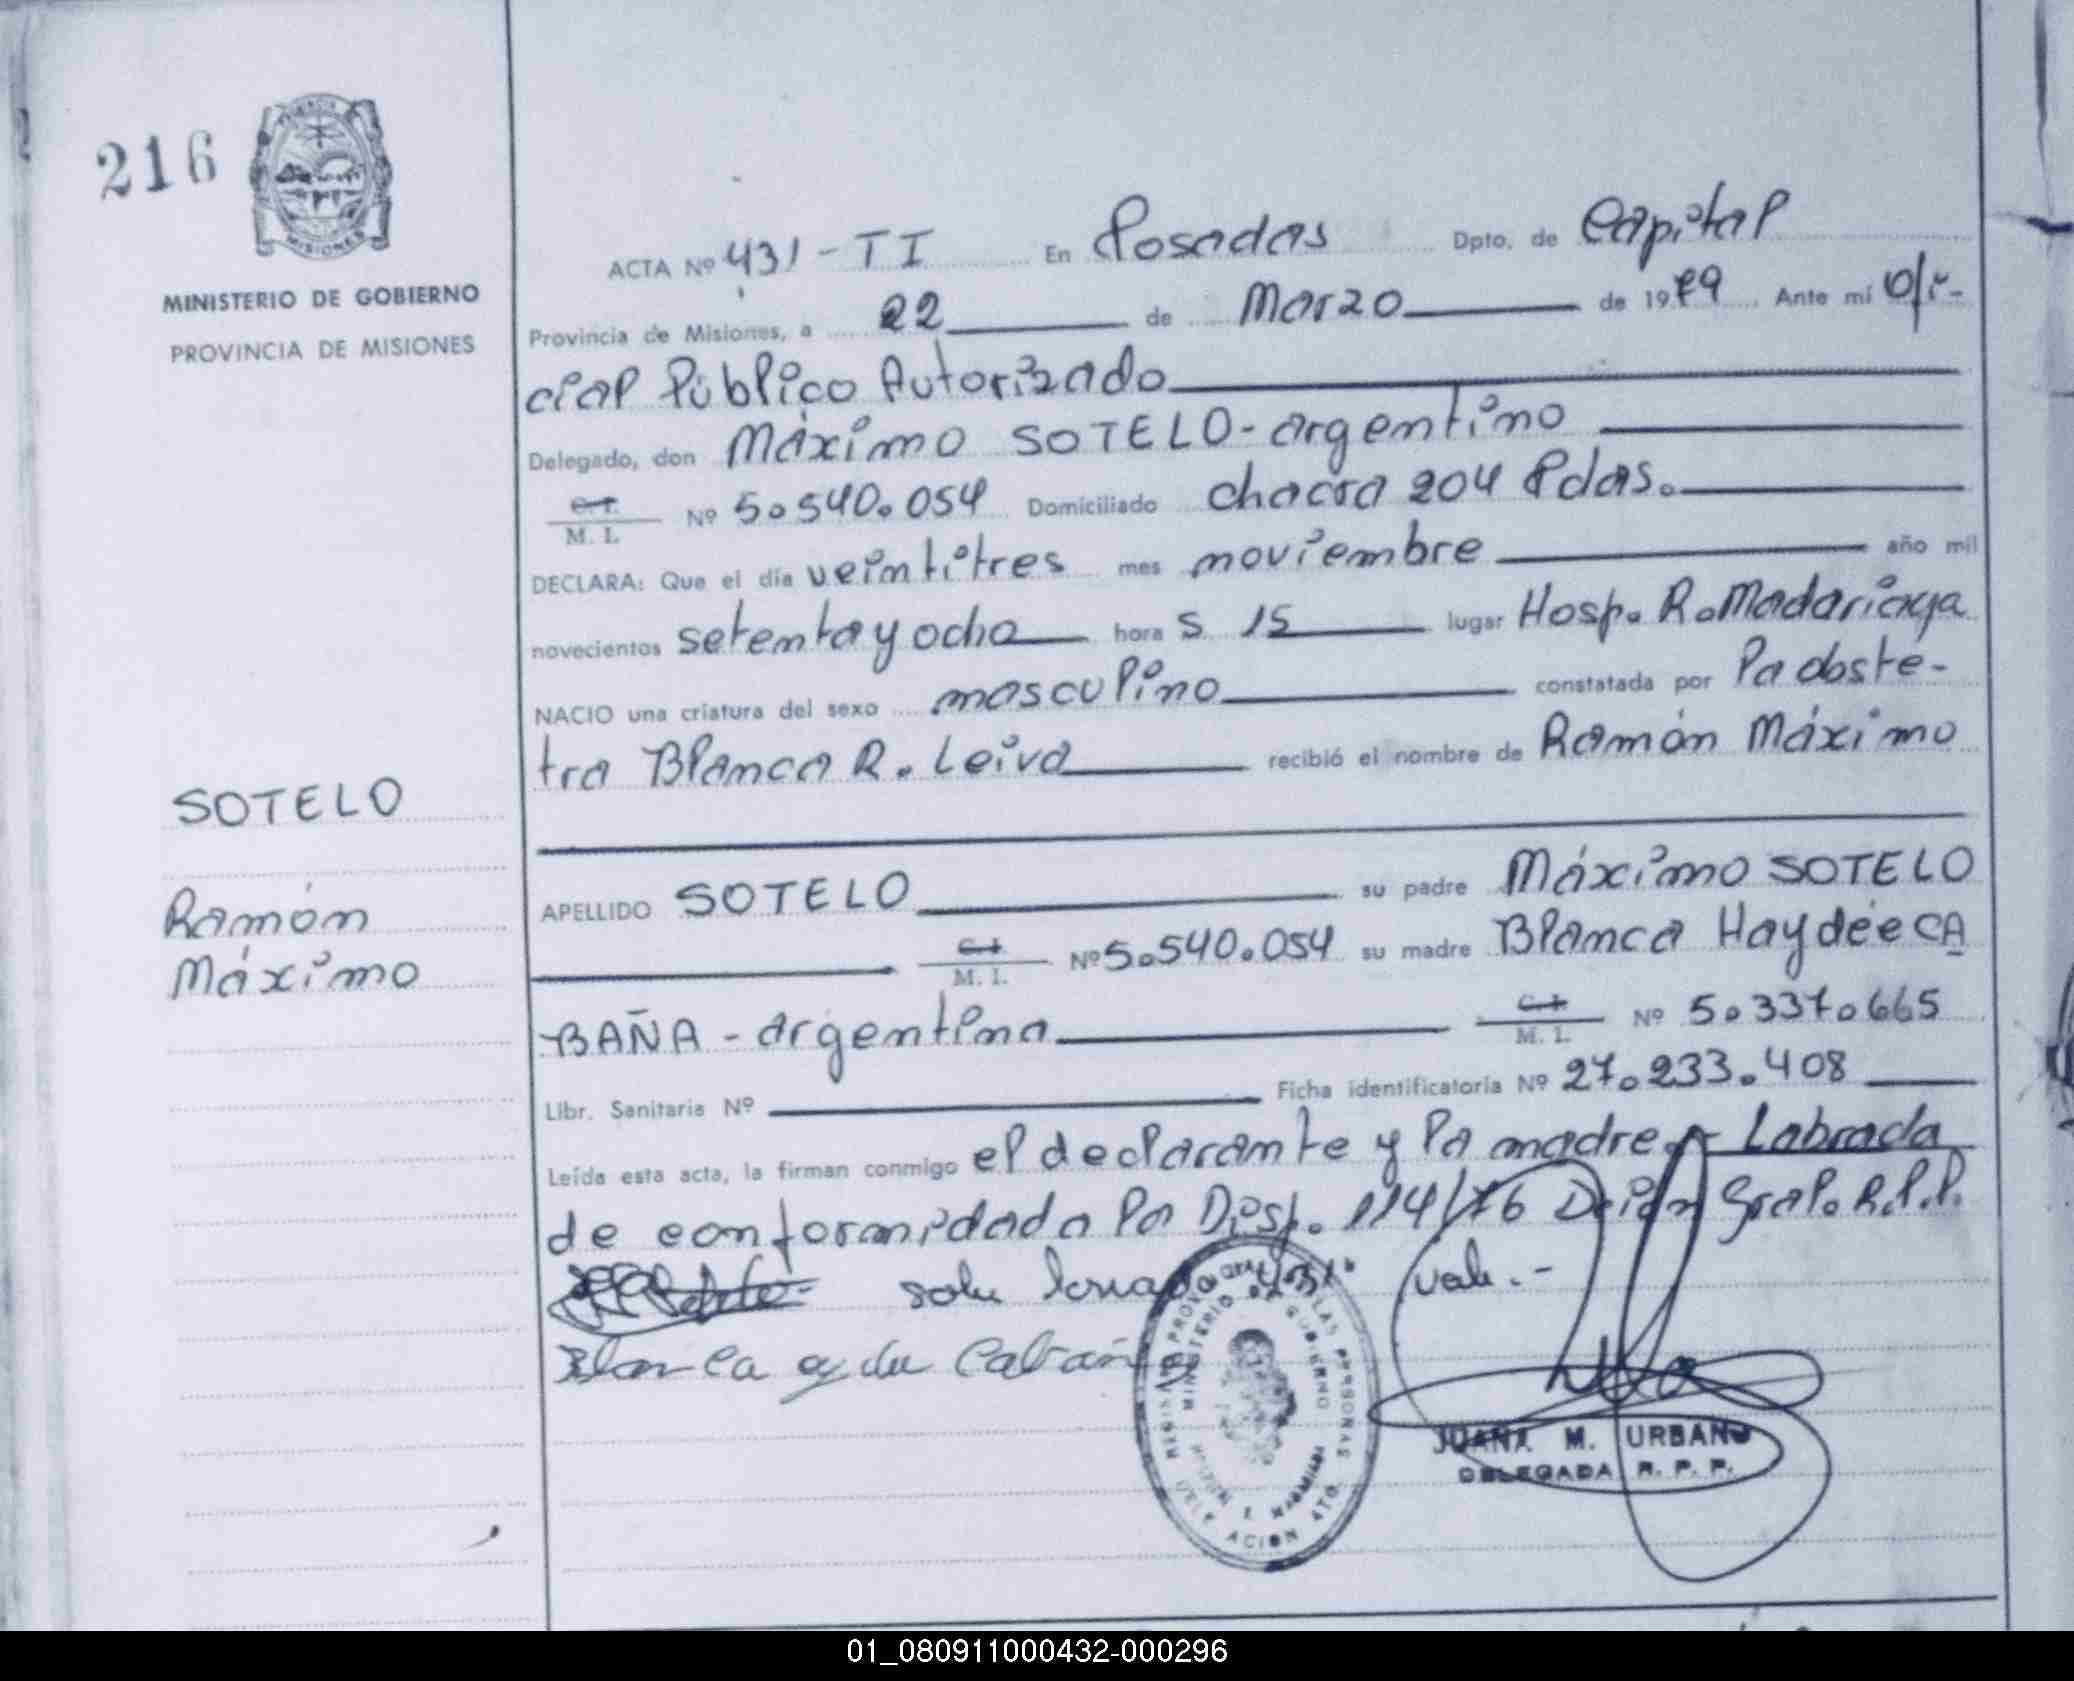 216
MISIONES
MINISTERIO DE GOBIERNO
PROVINCIA DE MISIONES
ACTA Nº 431-TI En Posadas Dpto. de Capital
Provincia de Misiones, a 22 de Marzo de 1979 Ante mí Ofi-
cial Público Autorizado
Delegado, don Máximo SOTELO-argentino
C.I. M. I. Nº 5.540.054 Domiciliado chacra 204 Pdas.
DECLARA: Que el día veintitres mes noviembre año mil
novecientos setenta y ocho hora s 15 lugar Hosp. R. Madariaga
NACIO una criatura del sexo masculino constatada por la obste-
tra Blanca R. Leiva recibió el nombre de Ramón Máximo
SOTELO
Ramón
Máximo
APELLIDO SOTELO su padre Máximo SOTELO
C.I. M. I. Nº 5.540.054 su madre Blanca Haydée CA
BAÑA - argentina C.I. M. I. Nº 5.337.665
Libr. Sanitaria Nº Ficha identificatoria Nº 27.233.408
Leída esta acta, la firman conmigo el declarante y la madre.- Labrada
de conformidad a la Disp. 114/76 Dción Gral. R.P.P.
431 vale.-
Blanca
MINISTERIO DE GOBIERNO
LAS PERSONAS
DELEGACION 4TO.
JUANA M. URBANO
DELEGADA R. P. P.
01_080911000432-000296